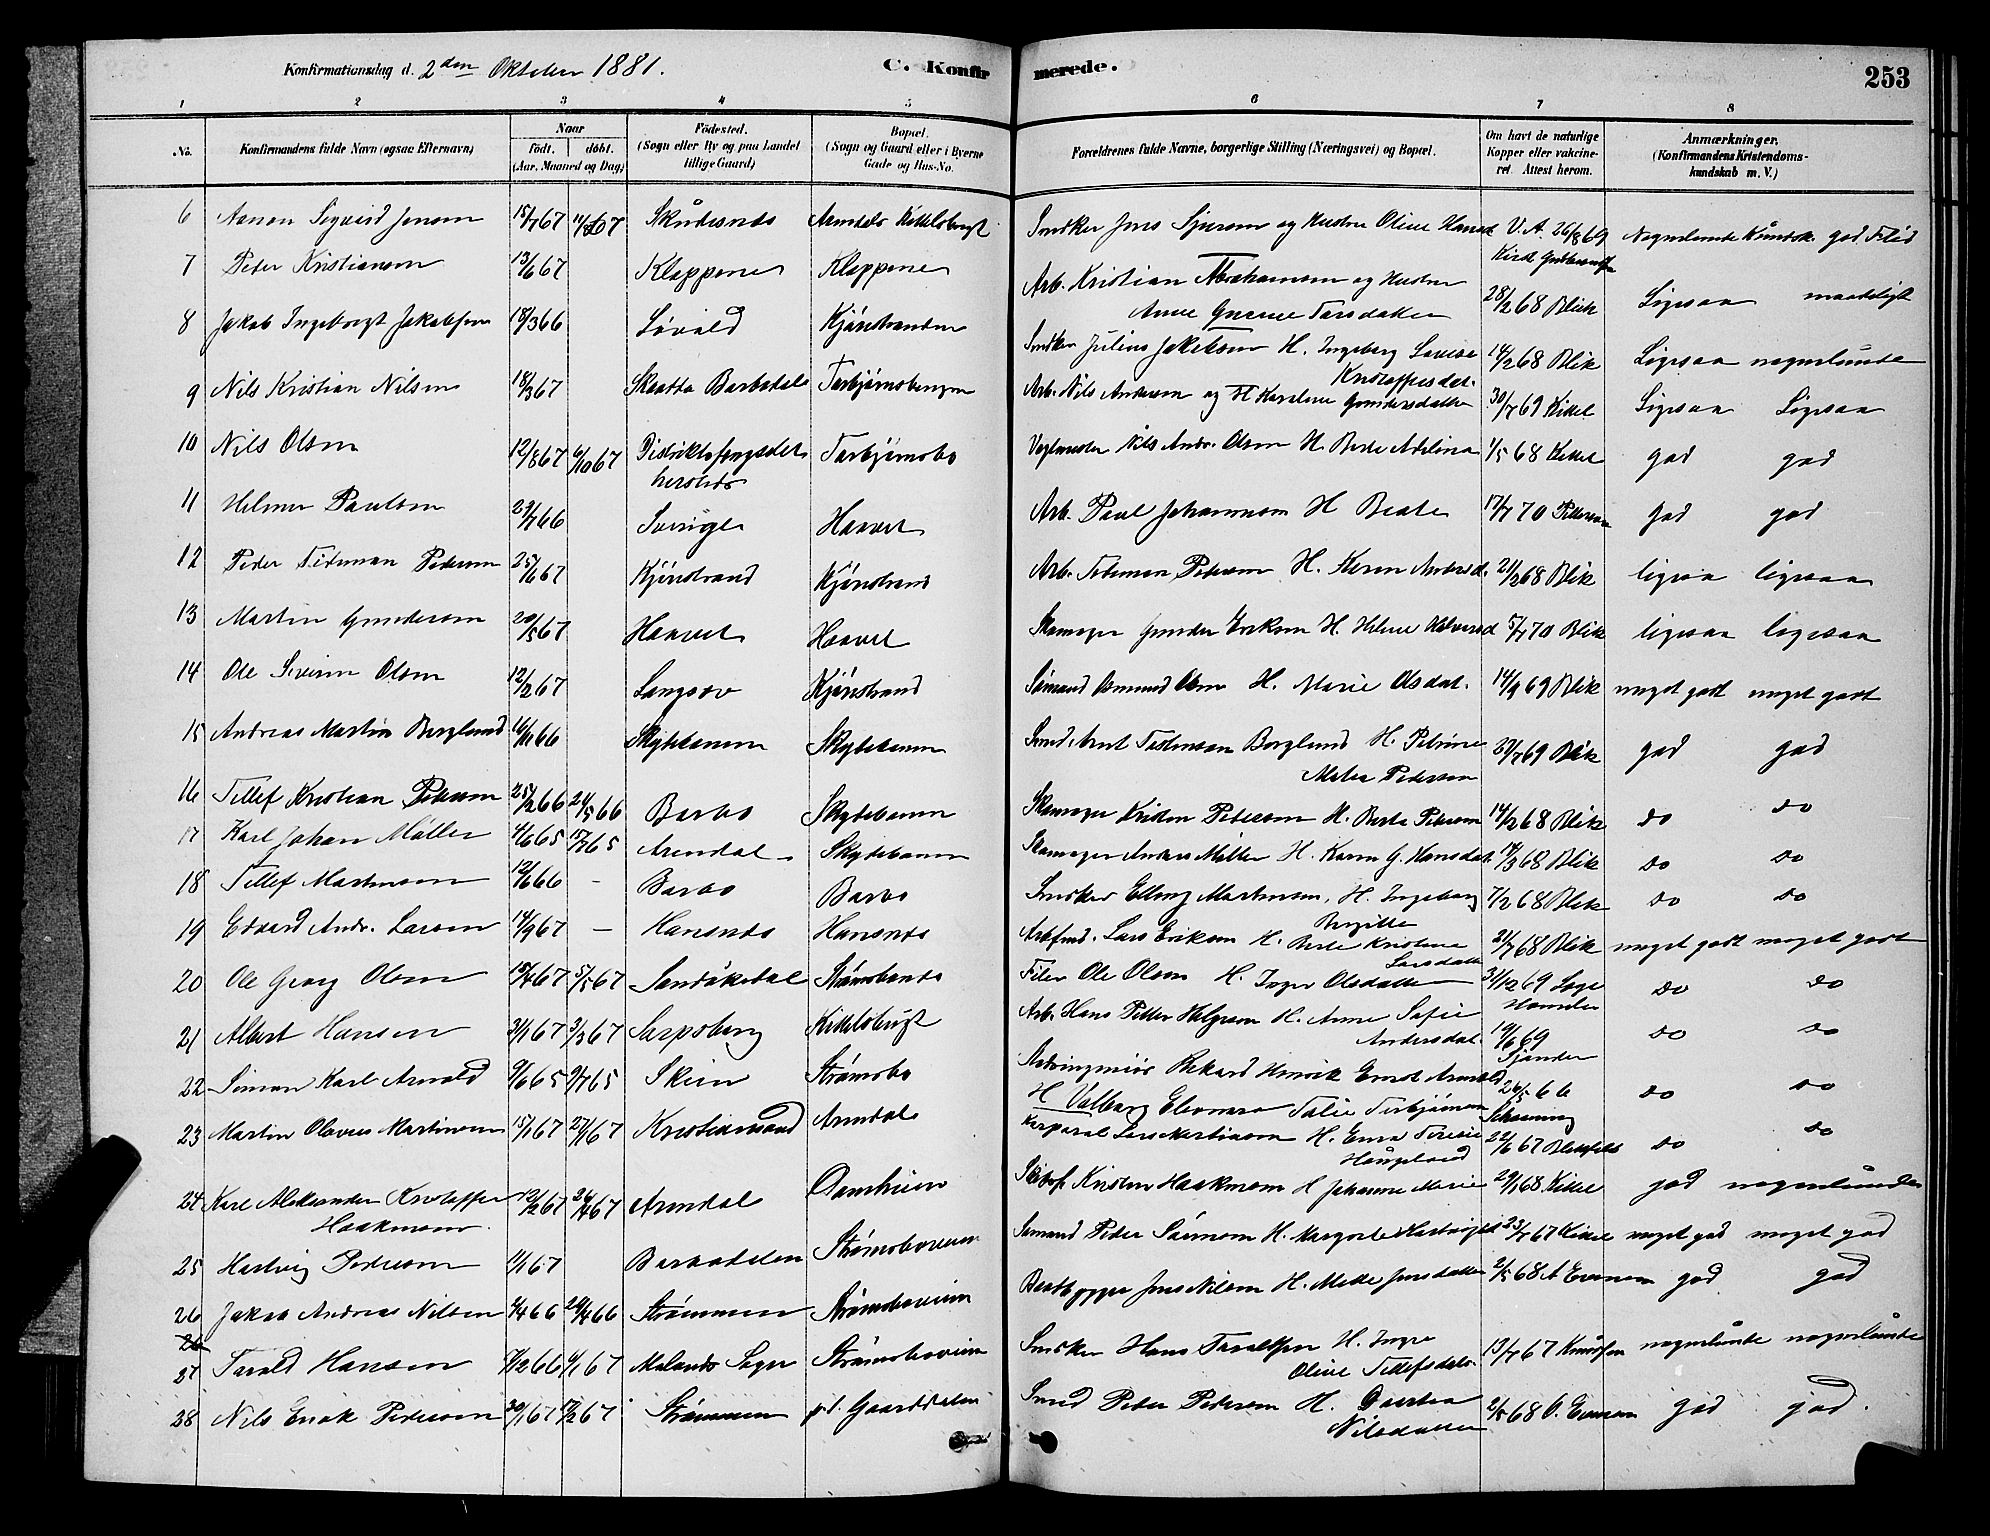 Konfirmationsdag d. 2den Oktober 1881. C. Konfirmerede. 253
1 2 3 4 5 6 7 8
No. Konfirmandens fulde Navn (ogsaa Efternavn) Naar født. døbt. (Aar, Maaned og Dag) Fødested. (Sogn eller By og paa Landet tillige Gaard) Bopæl. (Sogn og Gaard eller i Byerne Gade og Hus-No. Forældrenes fulde Navne, borgerlige Stilling (Næringsvei) og Bopæl. Om havt de naturlige Kopper eller vakcineret. Attest herom. Anmærkninger. (Konfirmandens Kristendomskundskab m. V.)
6 Aanon Sigvard Jensen 15/7 67 11/8 67 Skudesnes Arendals Kittelsbugt Snedker Jens Sjursen og Hustru Oline Hansd. V. A. 26/8 69 Nogenlunde Kundsk. god Flid
7 Peder Kristiansen 13/6 67 Kloppene Kloppene Arb. Kristian Abrahamsen og Hustru
Anne Gurine Larsdatter 28/2 68 Blik Ligesaa maadeligt
8 Jakob Ingebregt Jakobsen 18/3 66 Løvold Kjønstranden Snedker Julius Jakobsen H. Ingeborg Lovise
Kristoffersdat. 14/2 68 Blik Ligesaa nogenlunde
9 Nils Kristian Nilsen 18/3 67 Skaatta Barbodale Torbjørnsbergen Arb. Nils Andersen og H Karoline Gundersdatter 30/7 69 Kittel Ligesaa Ligesaa
10 Nils Olsen 12/8 67 6/10 67 Distriktsfengslet Torbjørnsbo Vogtmester Nils Andr. Olsen H. Berte Adelina 1/5 68 Kittel god god
11 Helmer Paulsen 29/7 66 Sverige Haavet Arb. Paul Johannesen H Beate 17/7 70 Pettersen god god
12 Peder Tideman Pedersen 25/6 67 Kjønstrand Kjønstrand Arb. Tideman Pedersen H. Karen Andersd. 21/2 68 Blik ligesaa ligesaa
13 Martin Gundersen 20/5 67 Haavet Haavet Skomager Gunder Eriksen H. Helene Halvorsd 5/7 70 Blik ligesaa ligesaa
14 Ole Severin Olsen 12/2 67 Langsæv Kjønstrand Sømand Osmund Olsen H. Marie Olsdat. 14/9 69 Blik meget godt meget godt
15 Andreas Martin Berglund 16/11 66 Skytebanen Skytebanen Smed Arnt Testensen Borglund H. Petrine
Maria Pedersen 30/7 69 Blik god god
16 Tellef Kristian Pedersen 25/2 66 21/5 66 Barbo Skytebanen Skomager Kristen Pedersen H. Berte Pedersen 14/2 68 Blik do do
17 Karl Johan Møller 4/6 65 15/7 65 Arendal Skytebanen Skomager Anders Møller H. Karen G. Hansdat. 18/3 68 Blik do do
18 Tellef Martinsen 12/6 66 - Barbo Barbo Snedker Elling Martinsen, H. Ingeborg
Birgitte 7/2 68 Blik do do
19 Edvard Andr. Larsen 14/9 67 - Hansnes Hansnes Arbfmd. Lars Eriksen H. Berte Kristine
Larsdatter 21/7 68 Blik meget godt meget godt
20 Ole Georg Olsen 15/4 67 5/5 67 Sandøkedal Strømsbones Filer Ole Olsen H. Inger Olsdatter 31/12 69 Lege
Homles do do
21 Albert Hansen 3/1 67 3/3 67 Sarpsborg Kittelsbugt Arb. Hans Petter Helgesen H. Anne Sofie
Andersdat. 19/6 69
Sjander do do
22 Simon Karl Arnold 9/6 65 9/7 65 Skien Strømsbo Rikard Henrik Ernst Arnold
H Valborg Eleonora Talie Torbjørnsen 26/5 66 do do
23 Martin Olavus Martinsen 15/1 67 27/1 67 Kristiansand Arendal Korporal Lars Martinsen H. Emra Teresie
Haugeland 22/6 67 Blikfeldt do do
24 Karl Aleksander Kristoffer
Haakonsen 12/2 67 24/4 67 Arendal Damhuien Kristen Haakonsen H Johanne Marie 29/1 68 Kittel god nogenlunde
25 Hartvig Pedersen 1/1 67 Barbodalen Strømsboveien Sømand Peder Sørensen H. Margrete Hartvigsd 23/7 67 Kittel meget god meget god
26 Jakob Andreas Nilsen 4/4 66 29/4 66 Strømmen Strømsboveien Baadbygger Jens Nilsen H. Mette Jensdatter 2/5 68 A Evensen god god
27 Tarald Hansen 7/2 66 6/1 67 Molands Sogn Strømsboveien Snedker Hans Taraldsen H. Ingre
Oline Tellefsdatr. 13/7 67 Knudsen nogenlunde nogenlunde
28 Nils Enok Pedersen 30/1 67 17/2 67 Strømmen pl. Gaarddalen Smed Peder Pedersen H. Dorthea
Nilsdatter 2/5 68 O. Evensen god god.